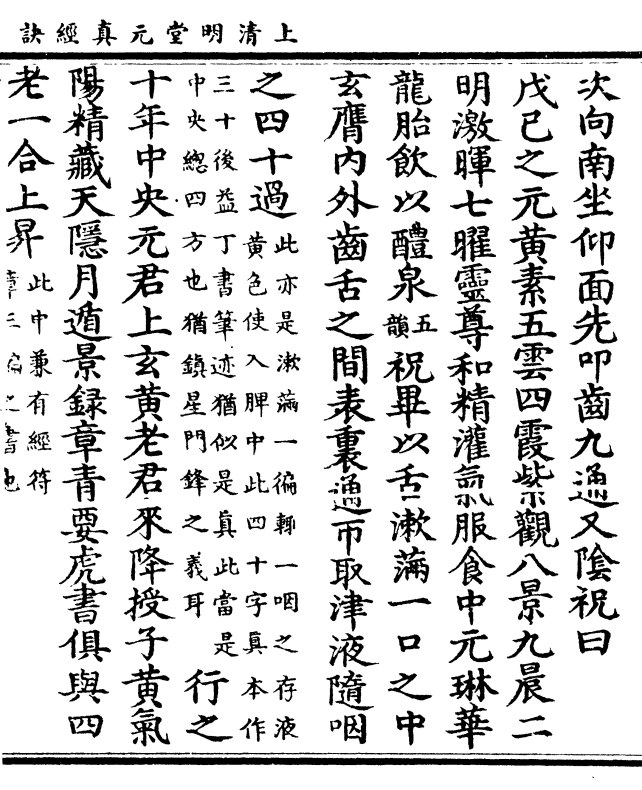 上清明堂元真經訣
次向南坐仰面先叩齒九通又陰祝曰
戊己之元黃素五雲四霞紫觀八景九晨二
明激暉七曜靈尊和精灌氣服食中元琳華
龍胎飲以醴泉五韻祝畢以舌漱滿一口之中
玄膺内外齒舌之間表裏通帀取津液隨咽
之四十過此亦是漱滿一徧輙一咽之存液
黃色使入脾中此四十字真本作
三十後益丁書筆迹猶似是真此當是
中央總四方也猶鎮星門鋒之義耳行之
十年中央元君上玄黃老君來降授子黃氣
陽精藏天隱月遁景録章青要虎書俱與四
老一合上昇此中兼有經符
章三徧之書也